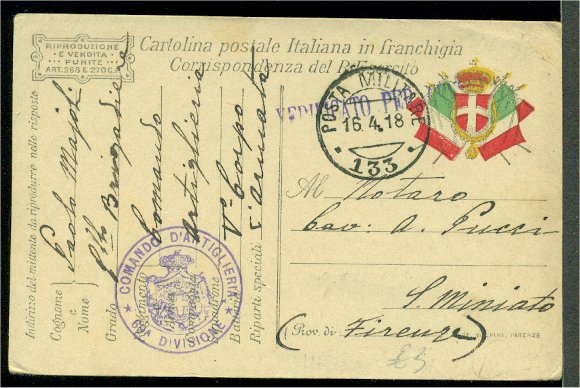 RIPRODUZIONE
E VENDITA
PUNITE
ART. 268 E 270 C.P.
Cartolina postale Italiana in franchigia
Corrispondenza del R. Esercito
VERIFICATO PER
POSTA MILITARE
16.4.18
133
Indirizzo del mittente da riprodurre nelle risposte
Cognome e Nome
Paolo
Grado
Brigadiere
Comando
Artiglieria
V° Corpo
Riparti speciali
5ª armata
COMANDO D'ARTIGLIERIA
69ª DIVISIONE
Al Notaro
Cav. A. Pucci
S. Miniato
(Prov. di Firenze)
FIRENZE